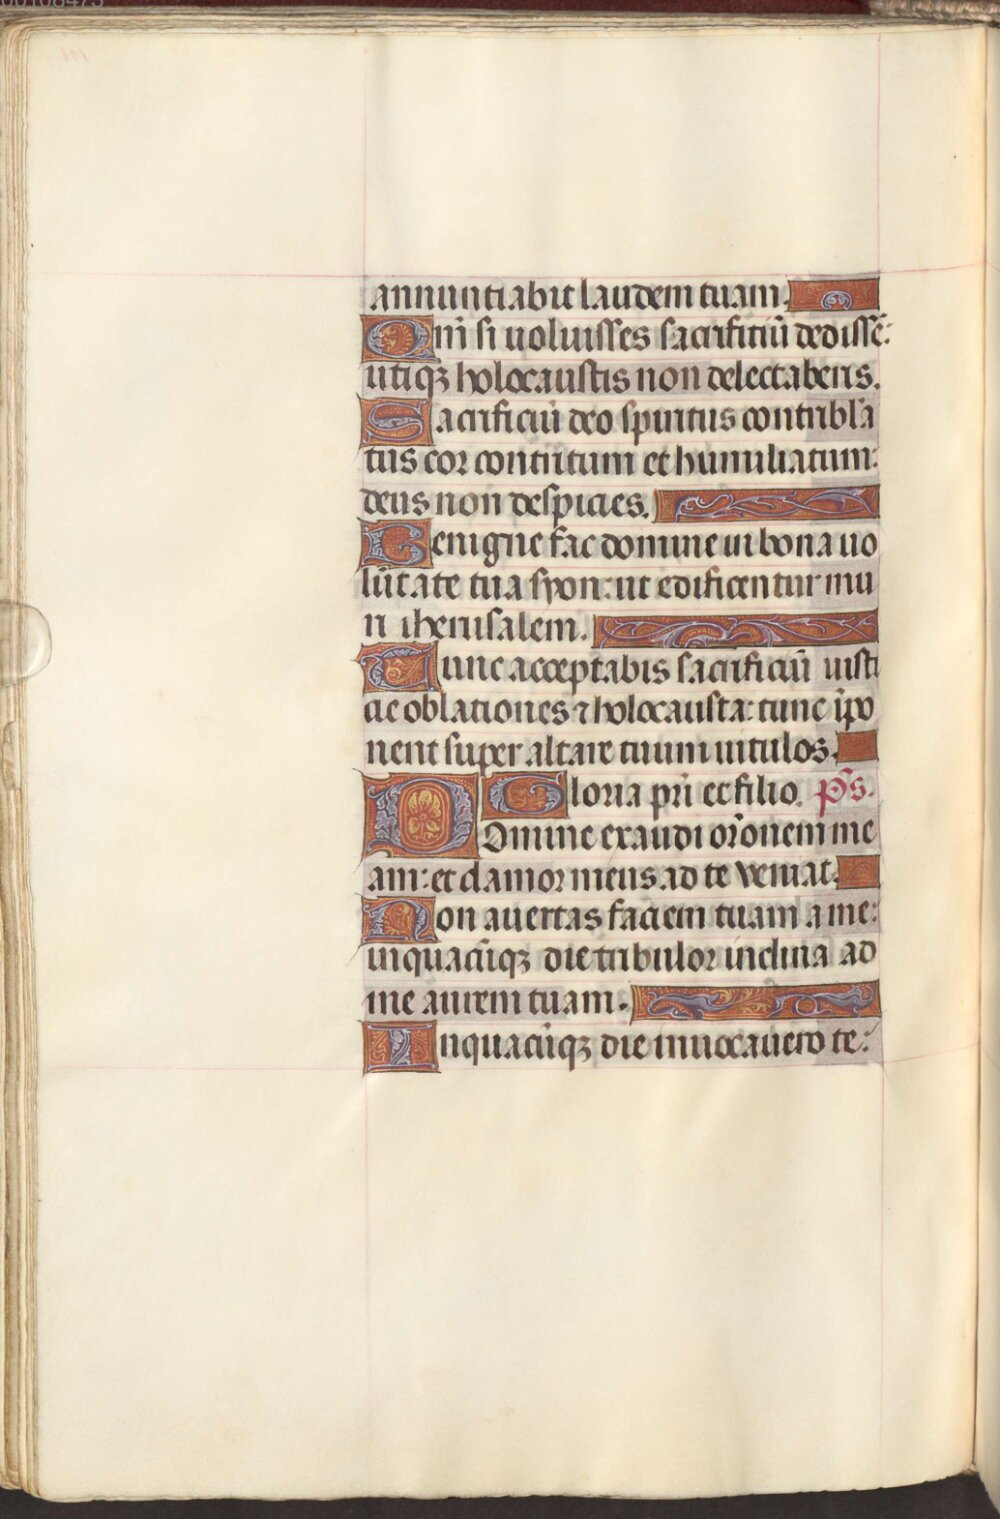 annuntiabit laudem tuam.
Qm̄ si uoluisses sacrificiū dedissē:
utiqꝫ holocaustis non delectaberis.
Sacrificiū deo spiritus contribla
tus cor contritum et humiliatum:
deus non despicies.
Benigne fac domine in bona uo
lūtate tua syon: ut edificentur mu
ri iherusalem.
Tunc acceptabis sacrificiū iusti
cie oblationes ⁊ holocausta: tunc īpo
nent super altare tuum uitulos.
Gloria pr̄i et filio. p̄s.
Domine exaudi or̄onem me
am: et clamor meus ad te veniat.
Non auertas faciem tuam a me:
in quacūqꝫ die tribulor inclina ad
me aurem tuam.
In quacūqꝫ die inuocauero te: